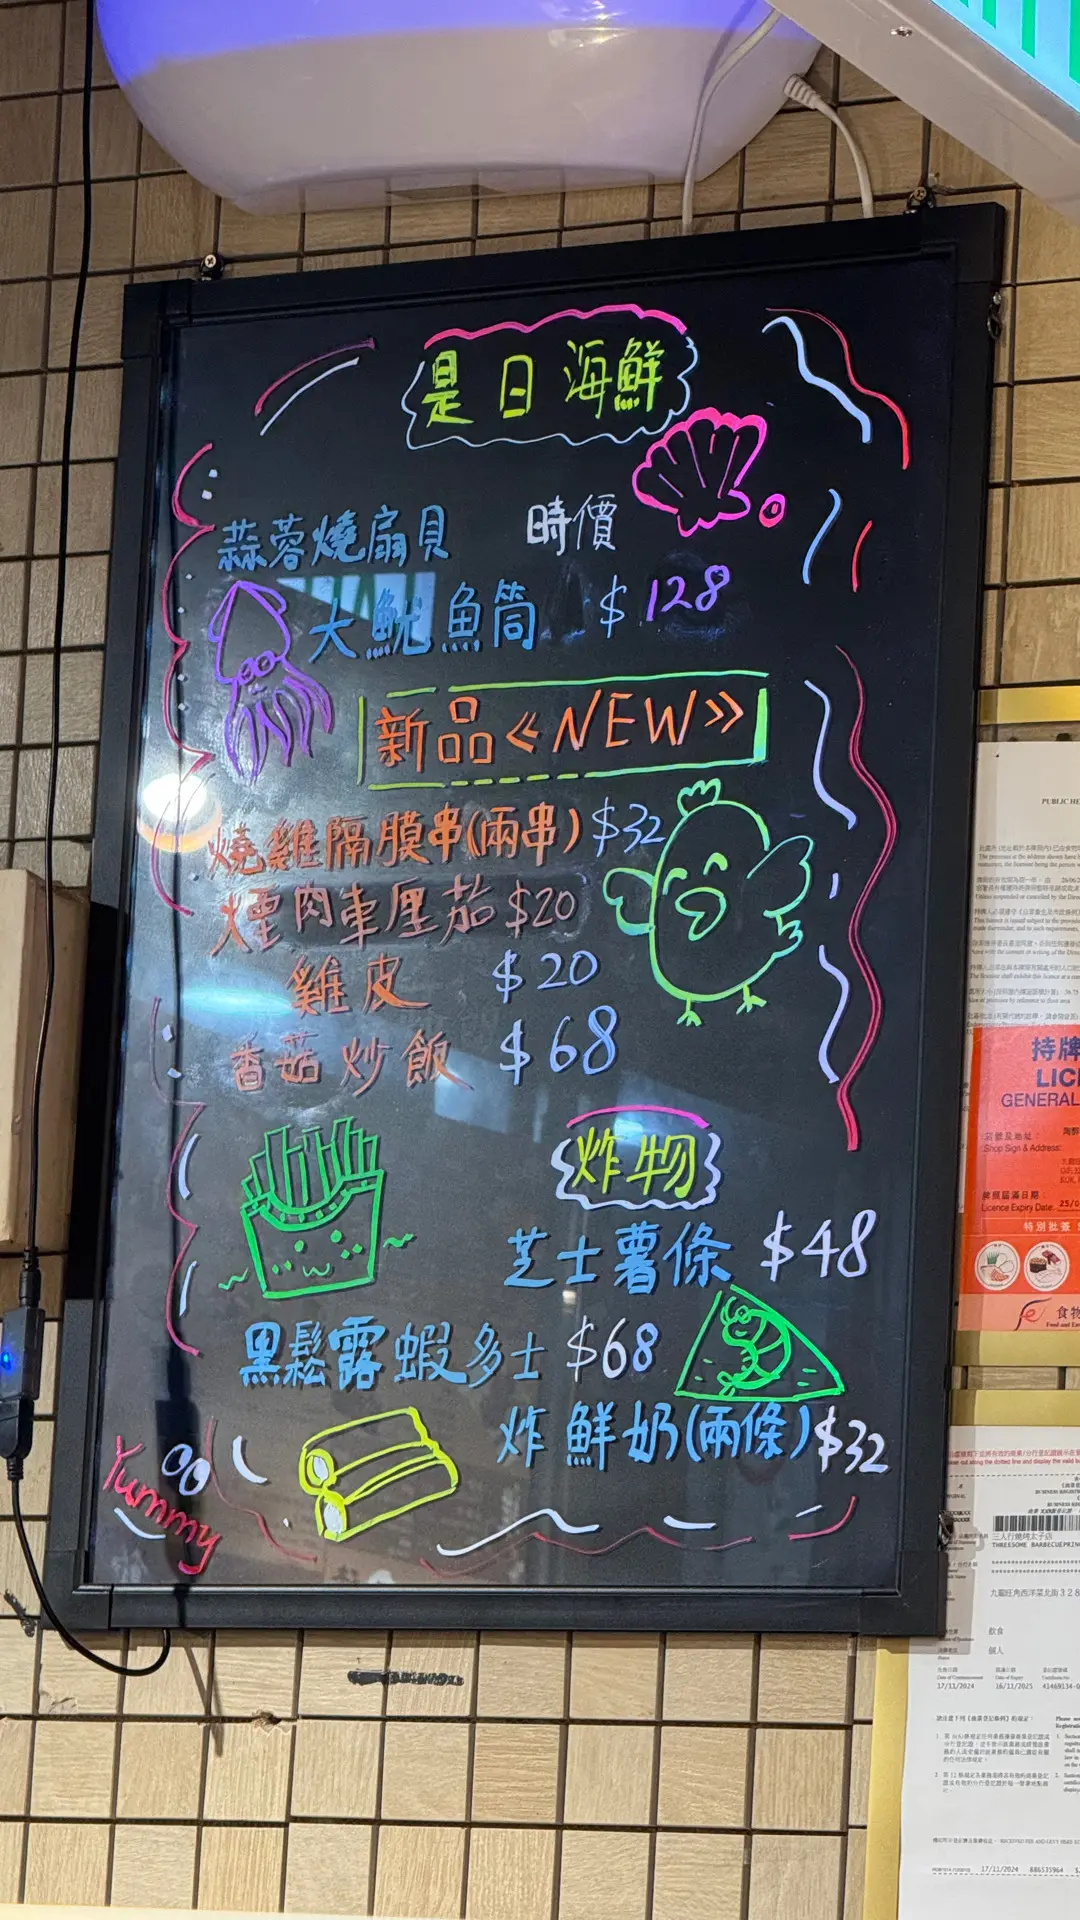 是日海鮮
蒜蓉燒扇貝 時價
大魷魚筒 $128
新品《NEW》
燒雞隔膜串(兩串) $32
煙肉車厘茄 $20
雞皮 $20
香菇炒飯 $68
炸物
芝士薯條 $48
黑鬆露蝦多士 $68
炸鮮奶(兩條) $32
Yummy
PUBLIC HE
持牌
LIC
GENERAL
店號及地址:
Shop Sign & Address:
牌照屆滿日期
Licence Expiry Date: 25/0
特別批簽
食物
Food and En
三人行燒烤太子店
THREESOME BARBECUEPRIN
九龍旺角西洋菜北街328
飲食
個人
17/11/2024 16/11/2025
17/11/2024 686535964